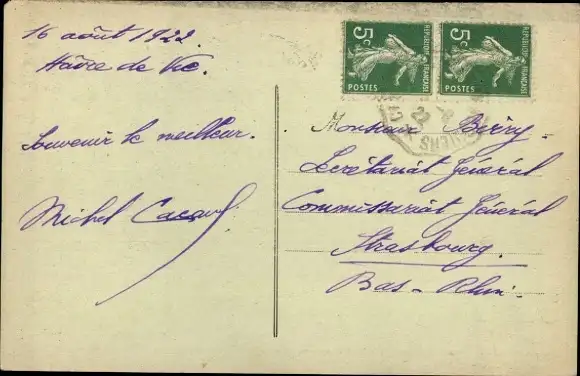 16 août 1922
Hâvre de Vie.
Souvenir le meilleur.
Michel
5c
REPUBLIQUE FRANÇAISE
POSTES
5c
REPUBLIQUE FRANÇAISE
POSTES
Monsieur Berry
Secrétariat Général
Commissariat Général
Strasbourg
Bas-Rhin